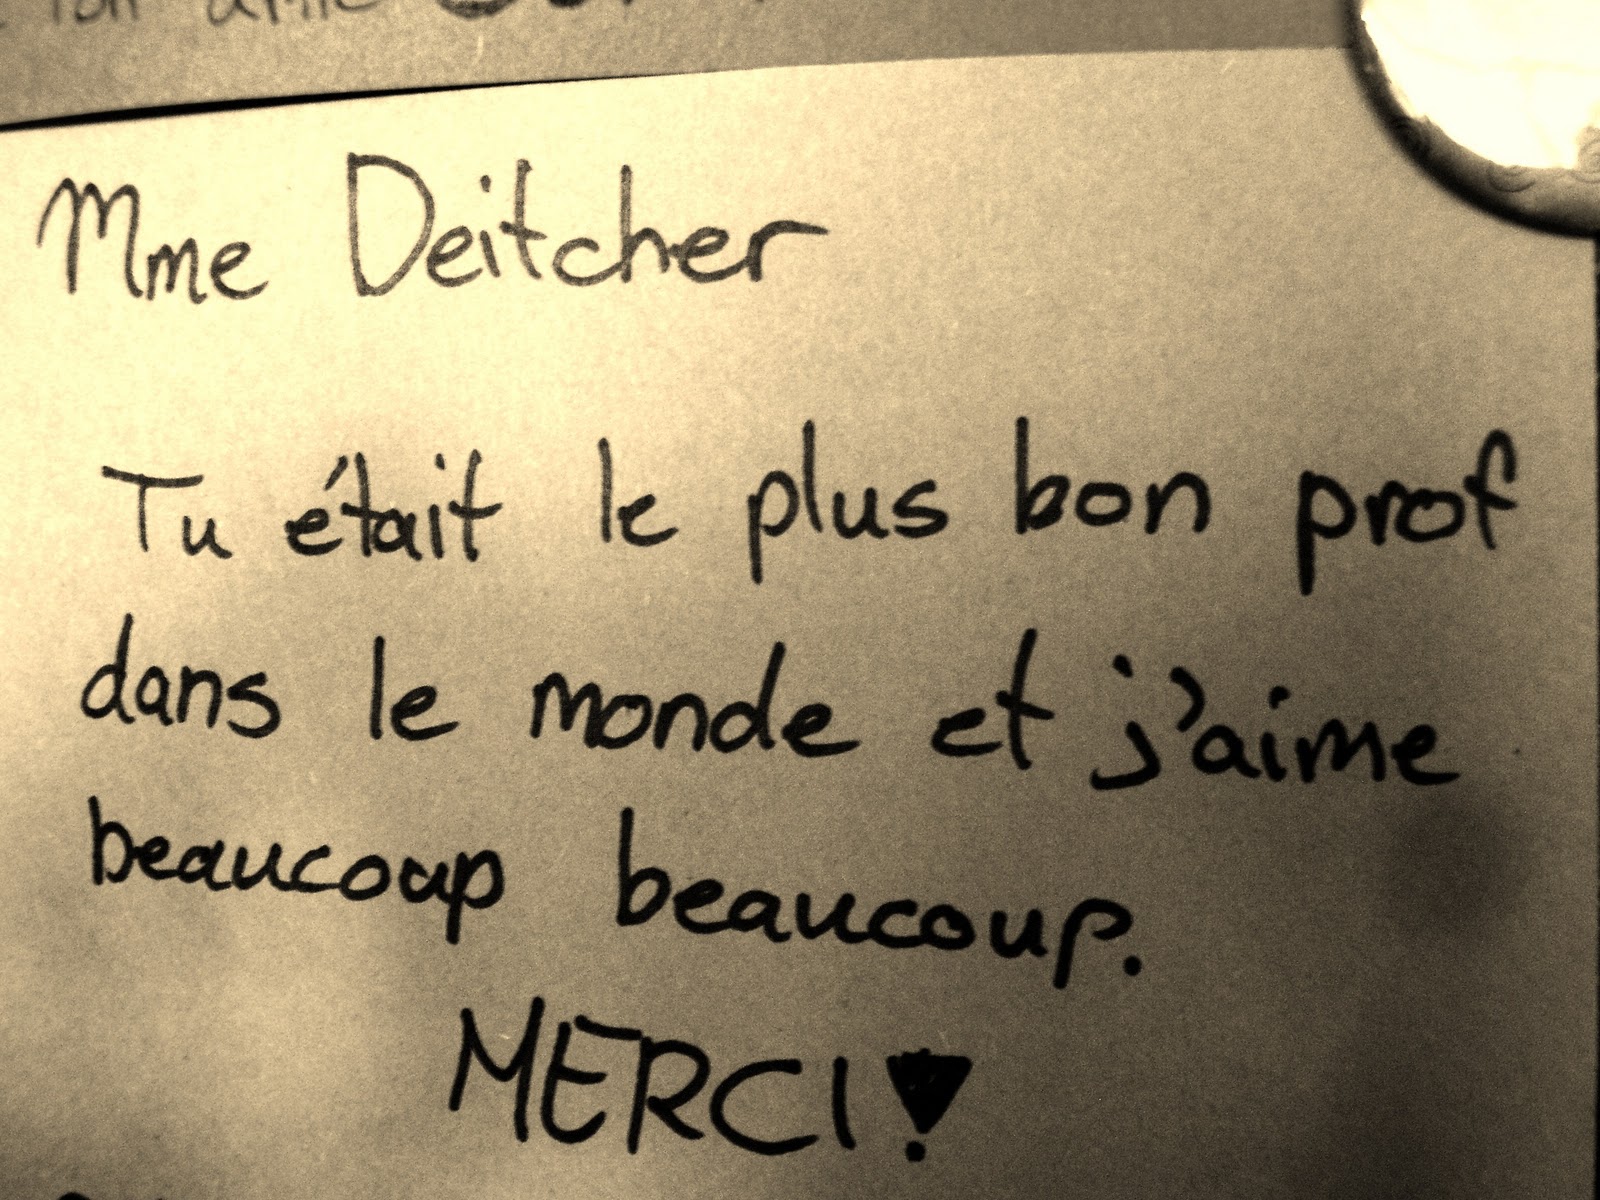 ton amie
Mme Deitcher
Tu était le plus bon prof
dans le monde et j'aime
beaucoup beaucoup.
MERCI!